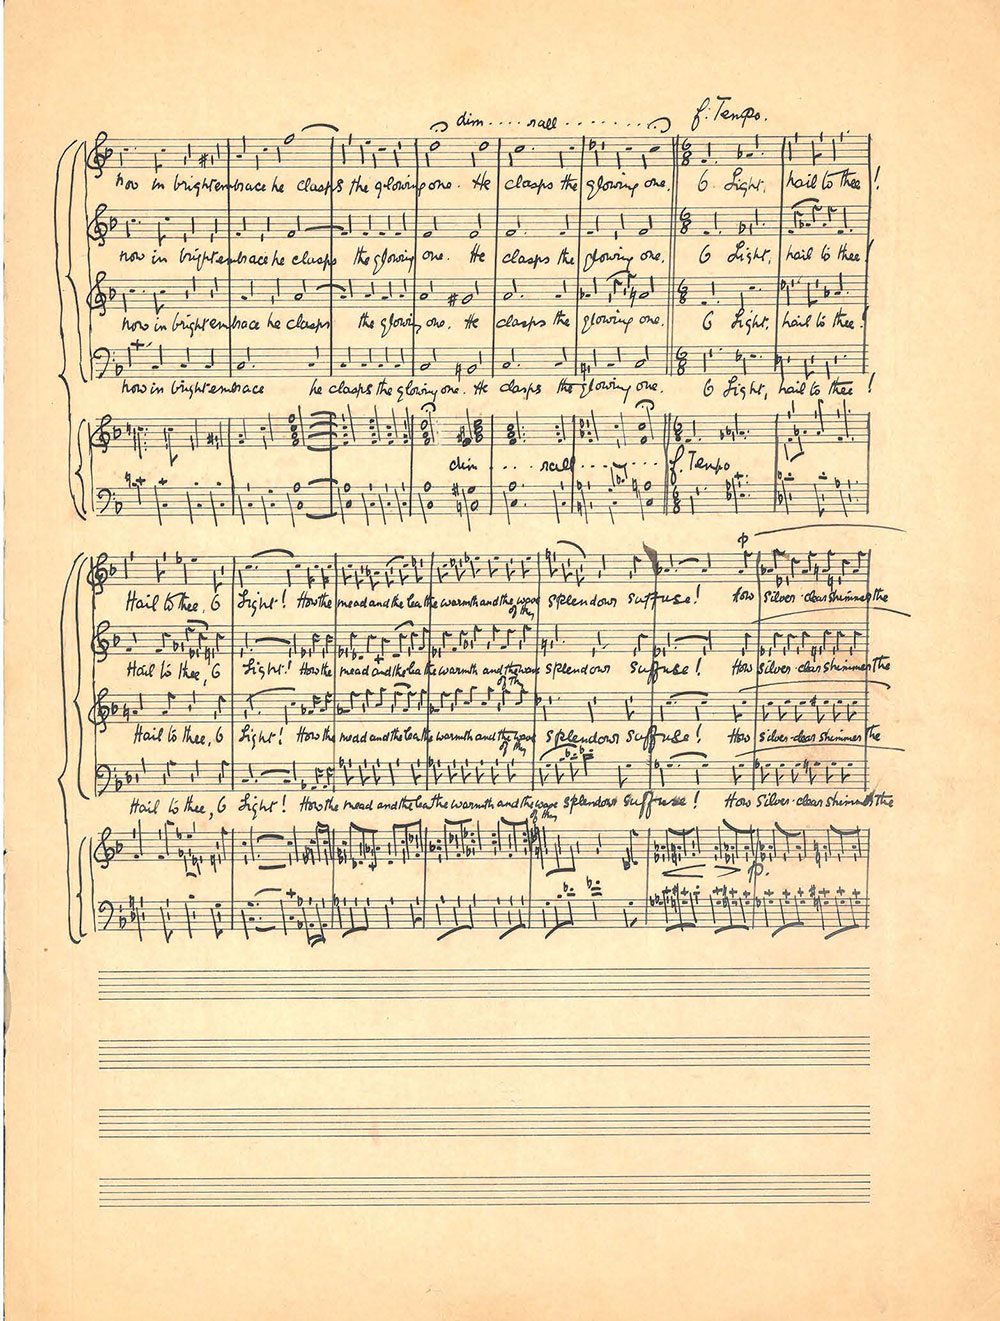 dim .... rall ........ f: Tempo.
now in bright embrace he clasps the glowing one. He clasps the glowing one. O Light, hail to thee!
now in bright embrace he clasps the glowing one. He clasps the glowing one. O Light, hail to thee!
now in bright embrace he clasps the glowing one. He clasps the glowing one. O Light, hail to thee!
now in bright embrace he clasps the glowing one. He clasps the glowing one. O Light, hail to thee!
dim .... rall ........ f. Tempo
p
Hail to thee, O Light! How the mead and the lea the warmth and the wave of thy splendour suffuse! How silver-clear shimmer the
Hail to thee, O Light! How the mead and the lea the warmth and the wave of thy splendour suffuse! How silver-clear shimmer the
Hail to thee, O Light! How the mead and the lea the warmth and the wave of thy splendour suffuse! How silver-clear shimmer the
Hail to thee, O Light! How the mead and the lea the warmth and the wave of thy splendour suffuse! How silver-clear shimmer the
p.